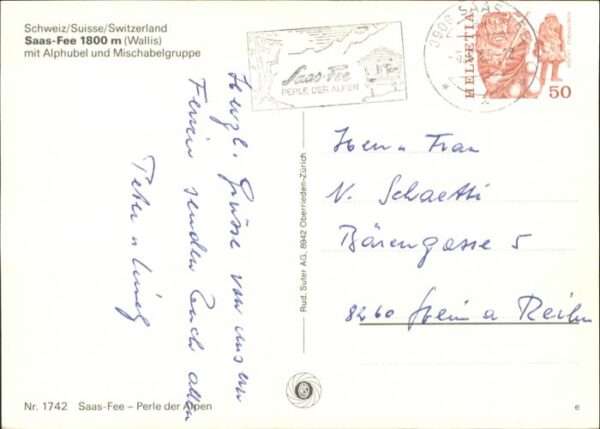 Schweiz/Suisse/Switzerland
Saas-Fee 1800 m (Wallis)
mit Alphubel und Mischabelgruppe
Herzl. Grüsse von unsern
Ferien senden Euch allen
Peter u
Saas-Fee
PERLE DER ALPEN
3906 SAAS-FEE
HELVETIA
50
Herr u Frau
N. Schaetti
Bärengasse 5
8260 Stein a Rhein
Rud. Suter AG, 8942 Oberrieden-Zürich
Nr. 1742 Saas-Fee – Perle der Alpen
e